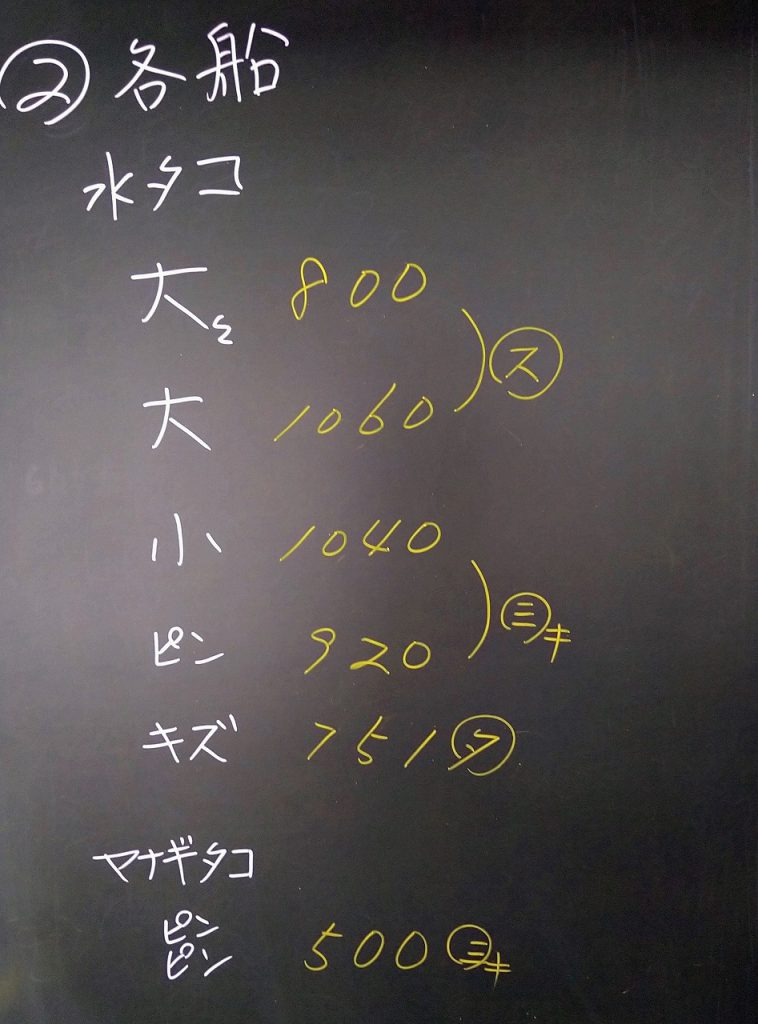 ② 各船
水タコ
大ミ 800
大 1060
㋜
小 1040
ピン 920
㊂キ
キズ 751 ㋟
ヤナギタコ
ピンピン 500 ㊂キ